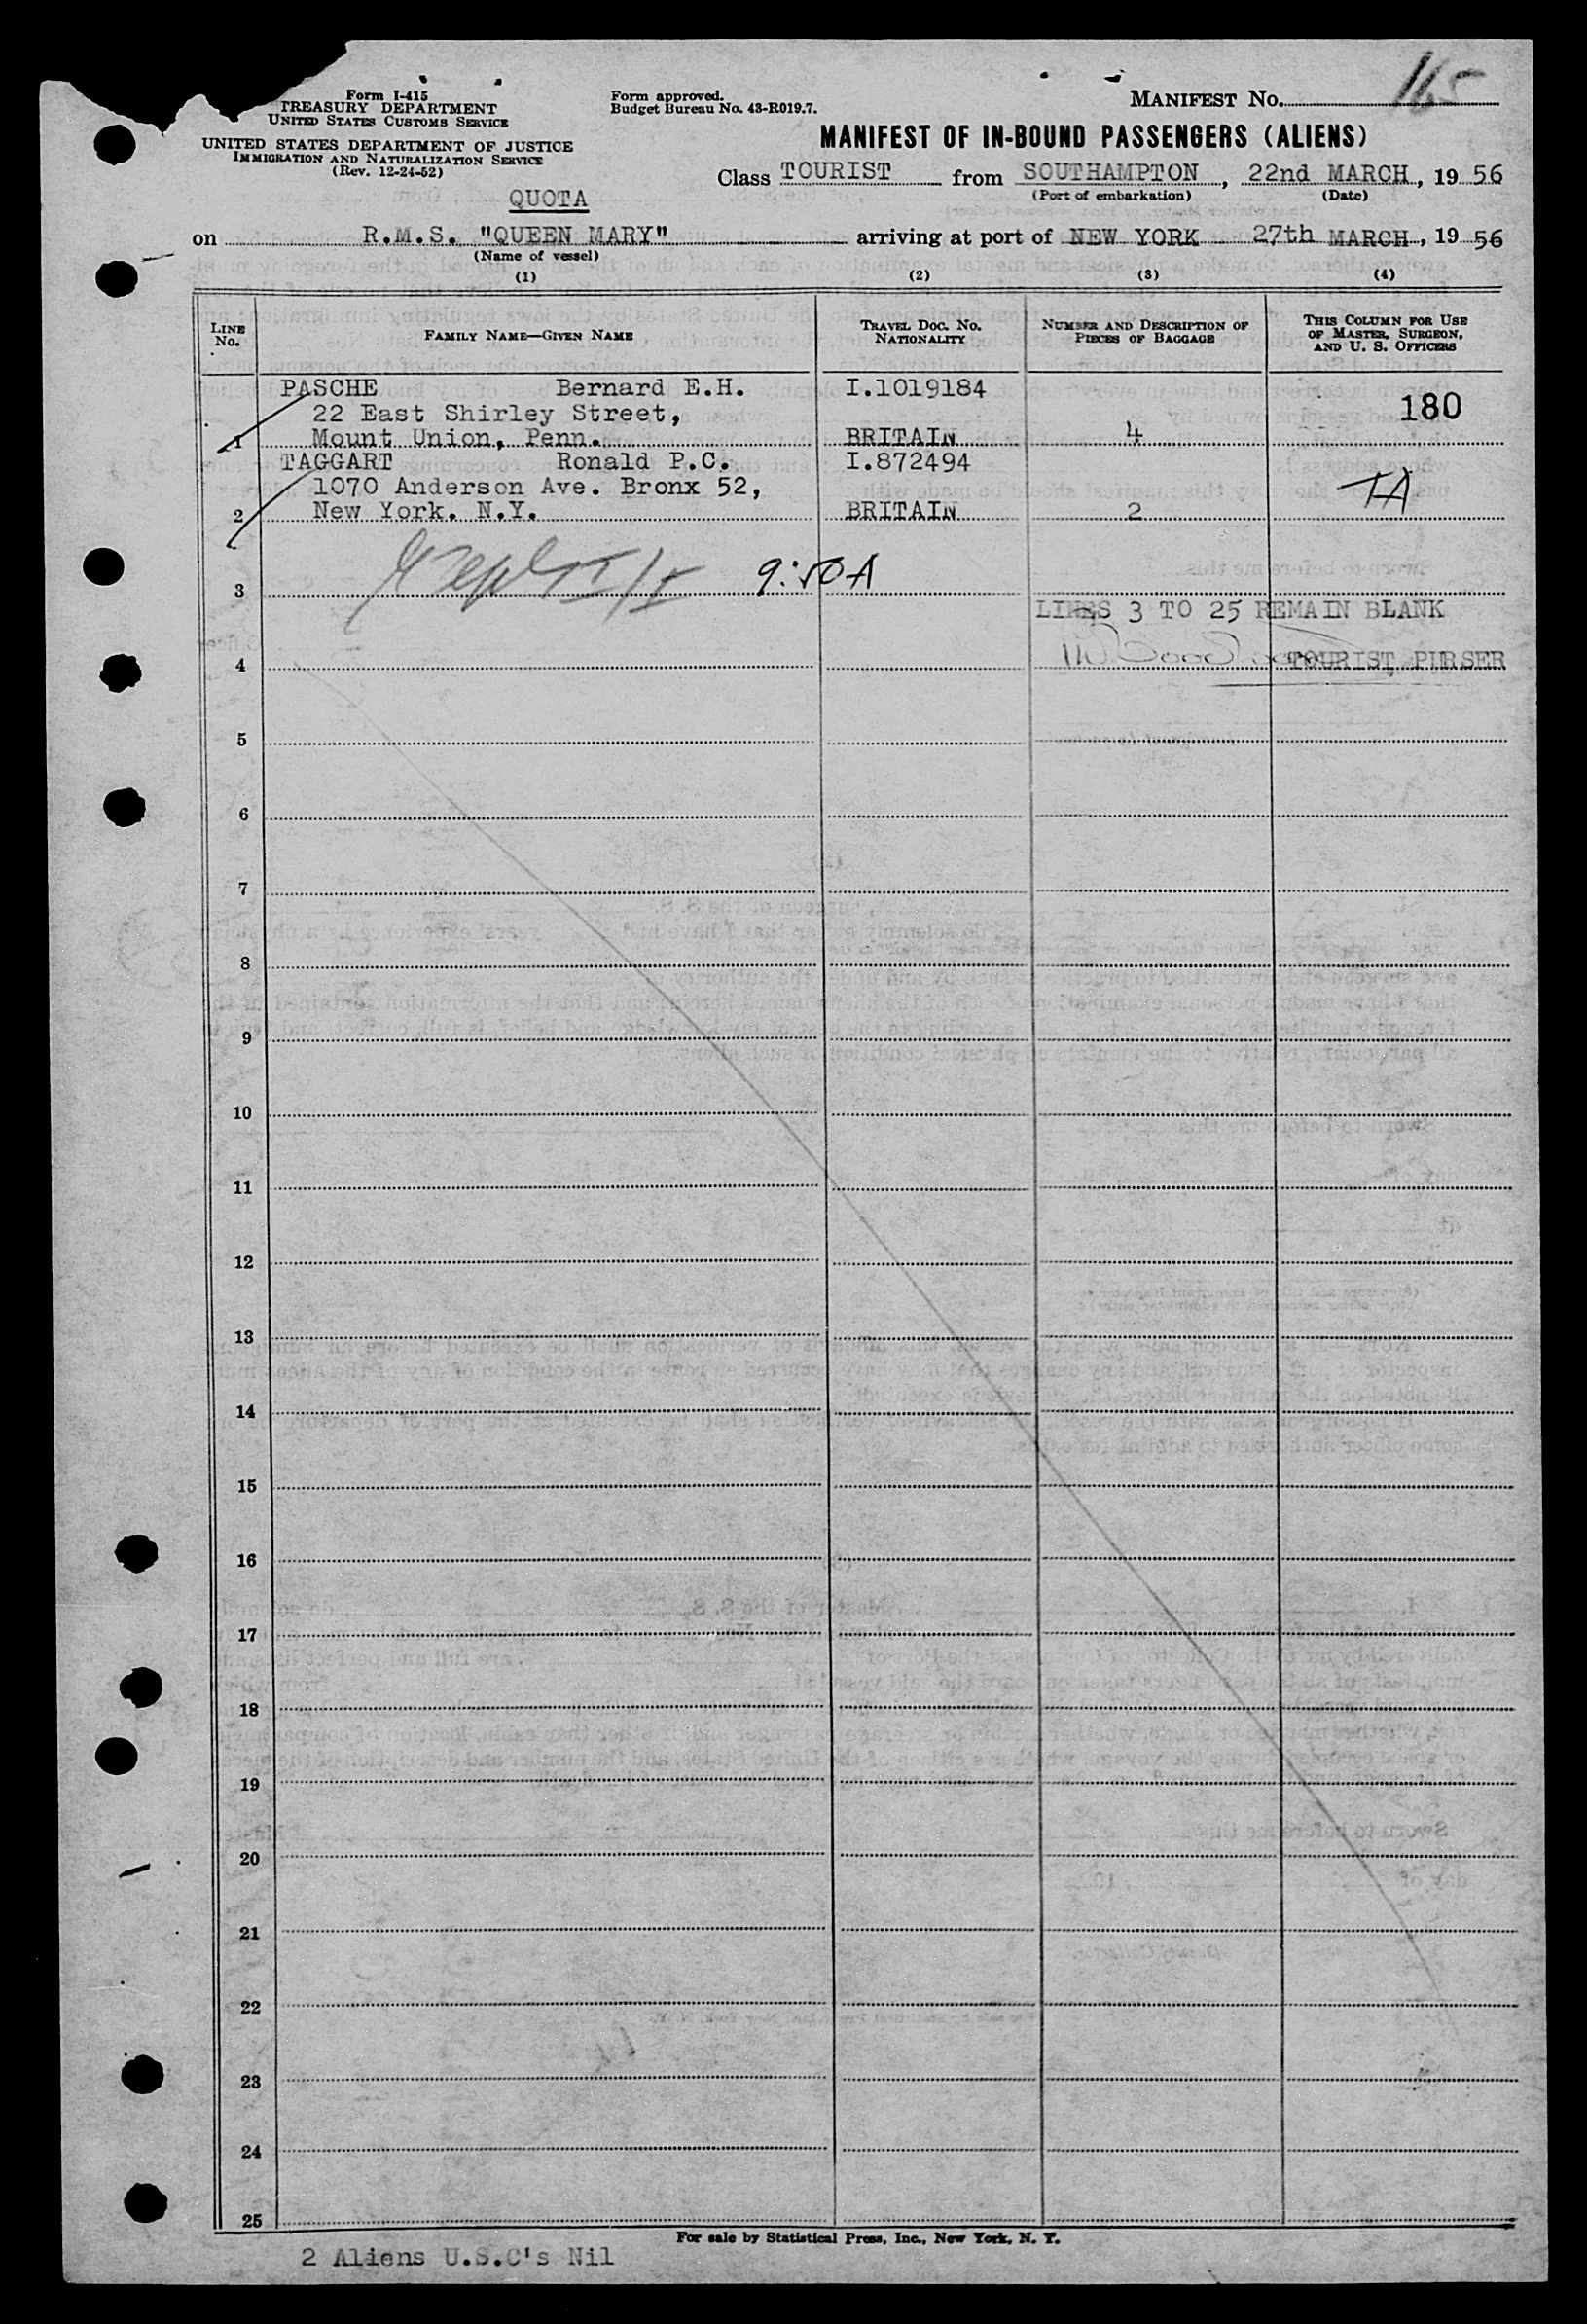 Form I-415
TREASURY DEPARTMENT
UNITED STATES CUSTOMS SERVICE
UNITED STATES DEPARTMENT OF JUSTICE
IMMIGRATION AND NATURALIZATION SERVICE
(Rev. 12-24-52)
Form approved.
Budget Bureau No. 43-R019.7.
MANIFEST NO. 165
MANIFEST OF IN-BOUND PASSENGERS (ALIENS)
Class TOURIST from SOUTHAMPTON, 22nd MARCH, 19 56
(Port of embarkation) (Date)
QUOTA
on R.M.S. "QUEEN MARY" arriving at port of NEW YORK 27th MARCH, 19 56
(Name of vessel)
(1) (2) (3) (4)
LINE NO. FAMILY NAME—GIVEN NAME TRAVEL DOC. NO. NATIONALITY NUMBER AND DESCRIPTION OF PIECES OF BAGGAGE THIS COLUMN FOR USE OF MASTER, SURGEON, AND U. S. OFFICERS
PASCHE Bernard E.H. I.1019184 180
22 East Shirley Street,
1 Mount Union, Penn. BRITAIN 4
TAGGART Ronald P.C. I.872494
1070 Anderson Ave. Bronx 52, TA
2 New York. N.Y. BRITAIN 2
3 9:50A
LINES 3 TO 25 REMAIN BLANK
4 TOURIST PURSER
5
6
7
8
9
10
11
12
13
14
15
16
17
18
19
20
21
22
23
24
25
For sale by Statistical Press, Inc., New York, N. Y.
2 Aliens U.S.C's Nil